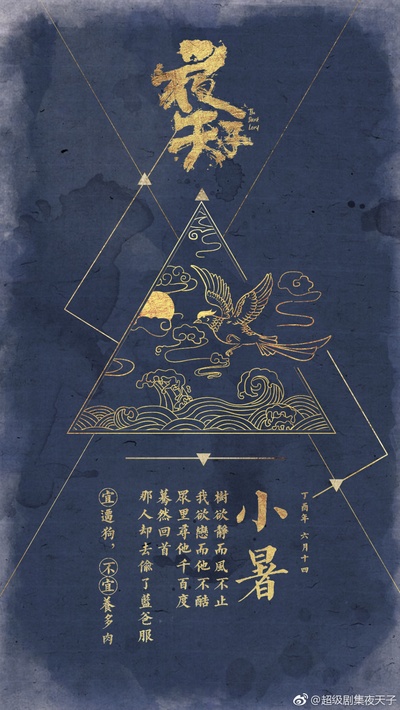 夜天子
The Dark Lord
丁酉年 六月十四
小暑
樹欲靜而風不止
我欲戀而他不酷
眾里尋他千百度
驀然回首
那人却去偷了藍爸服
宜遛狗，不宜養多肉
@超级剧集夜天子